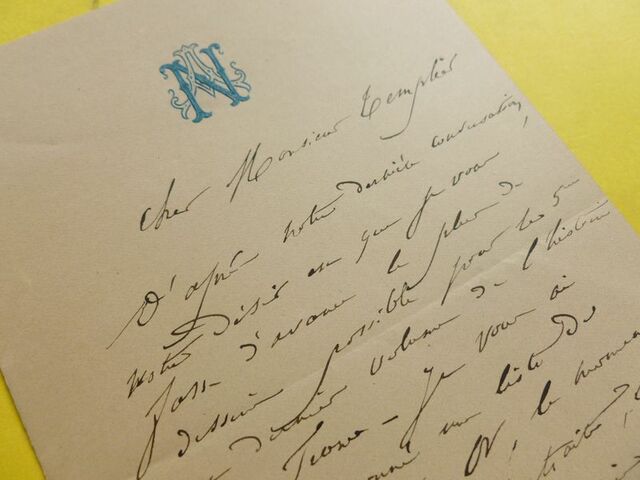 AN
Cher Monsieur Templier
D'après notre dernière conversation,
votre désir est que je vous
fasse d'avance le plus de
dessins possible pour les
dernier volume de l'histoire
France - Je vous ai
une liste de
Or, le moment